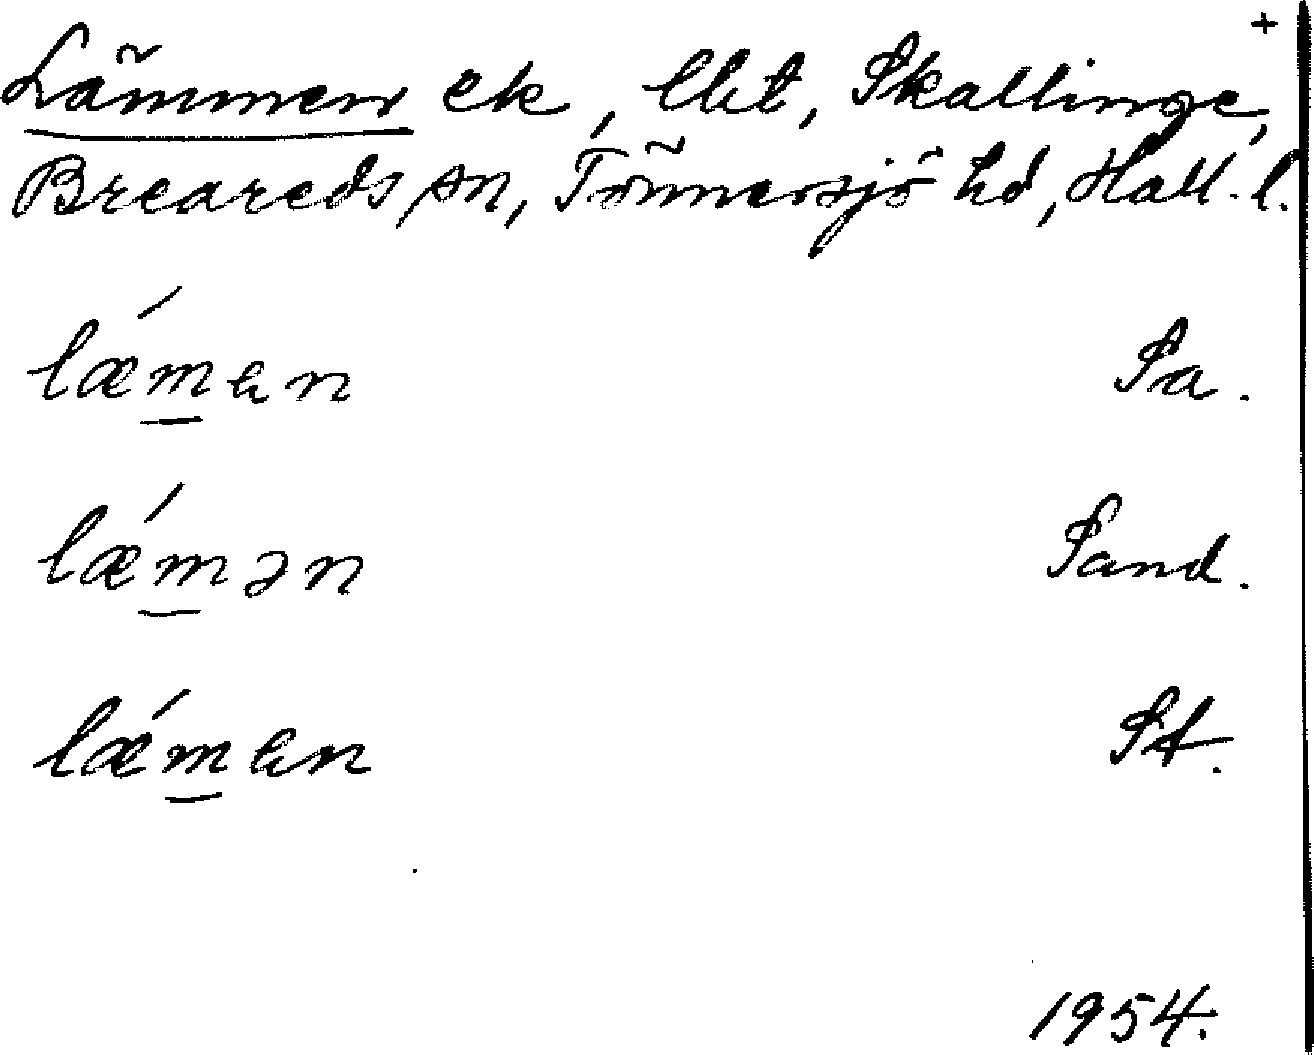 +
Lämmen ek, lht, Skallinge,
Breareds sn, Tönnersjö hd, Hall. l.
lǽm̲en Sa.
lǽm̲ən Sand.
lǽm̲en St.
1954.